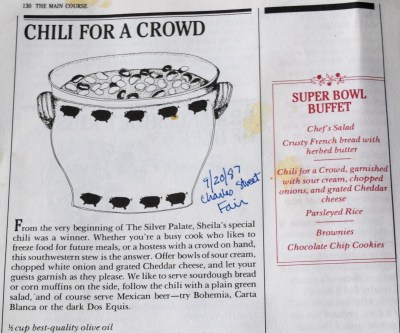 130 THE MAIN COURSE
CHILI FOR A CROWD
9/20/87
Charles Street
Fair
From the very beginning of The Silver Palate, Sheila's special
chili was a winner. Whether you're a busy cook who likes to
freeze food for future meals, or a hostess with a crowd on hand,
this southwestern stew is the answer. Offer bowls of sour cream,
chopped white onion and grated Cheddar cheese, and let your
guests garnish as they please. We like to serve sourdough bread
or corn muffins on the side, follow the chili with a plain green
salad, and of course serve Mexican beer—try Bohemia, Carta
Blanca or the dark Dos Equis.
½ cup best-quality olive oil
SUPER BOWL
BUFFET
Chef's Salad
Crusty French bread with
herbed butter
Chili for a Crowd, garnished
with sour cream, chopped
onions, and grated Cheddar
cheese
Parsleyed Rice
Brownies
Chocolate Chip Cookies